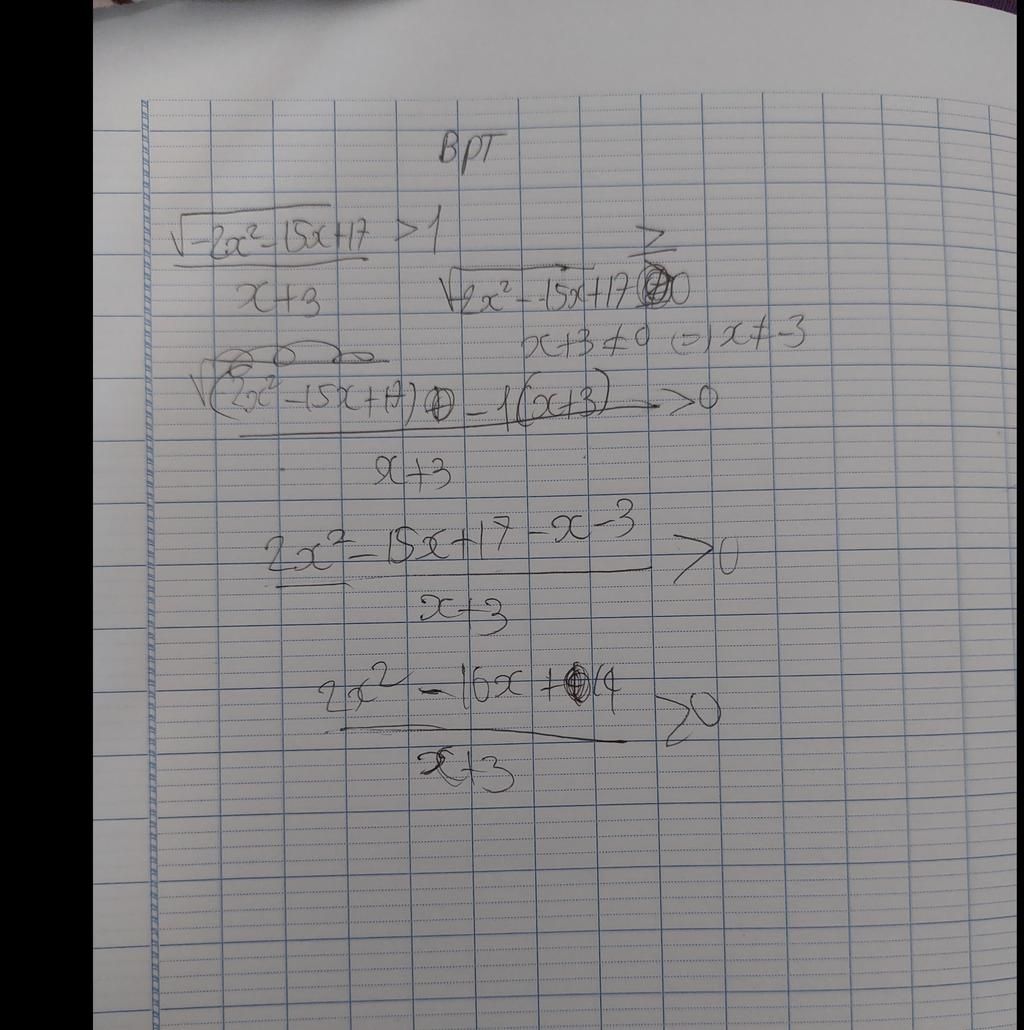 BPT
√-2x²-15x+17 > 1
x+3
≥
√2x² - 15x+17 0
x+3 ≠ 0 (=) x ≠ -3
√(2x² - 15x+17) - 1(x+3) > 0
x+3
2x² - 15x+17 - x - 3 > 0
x+3
2x² - 16x + 14 > 0
x+3